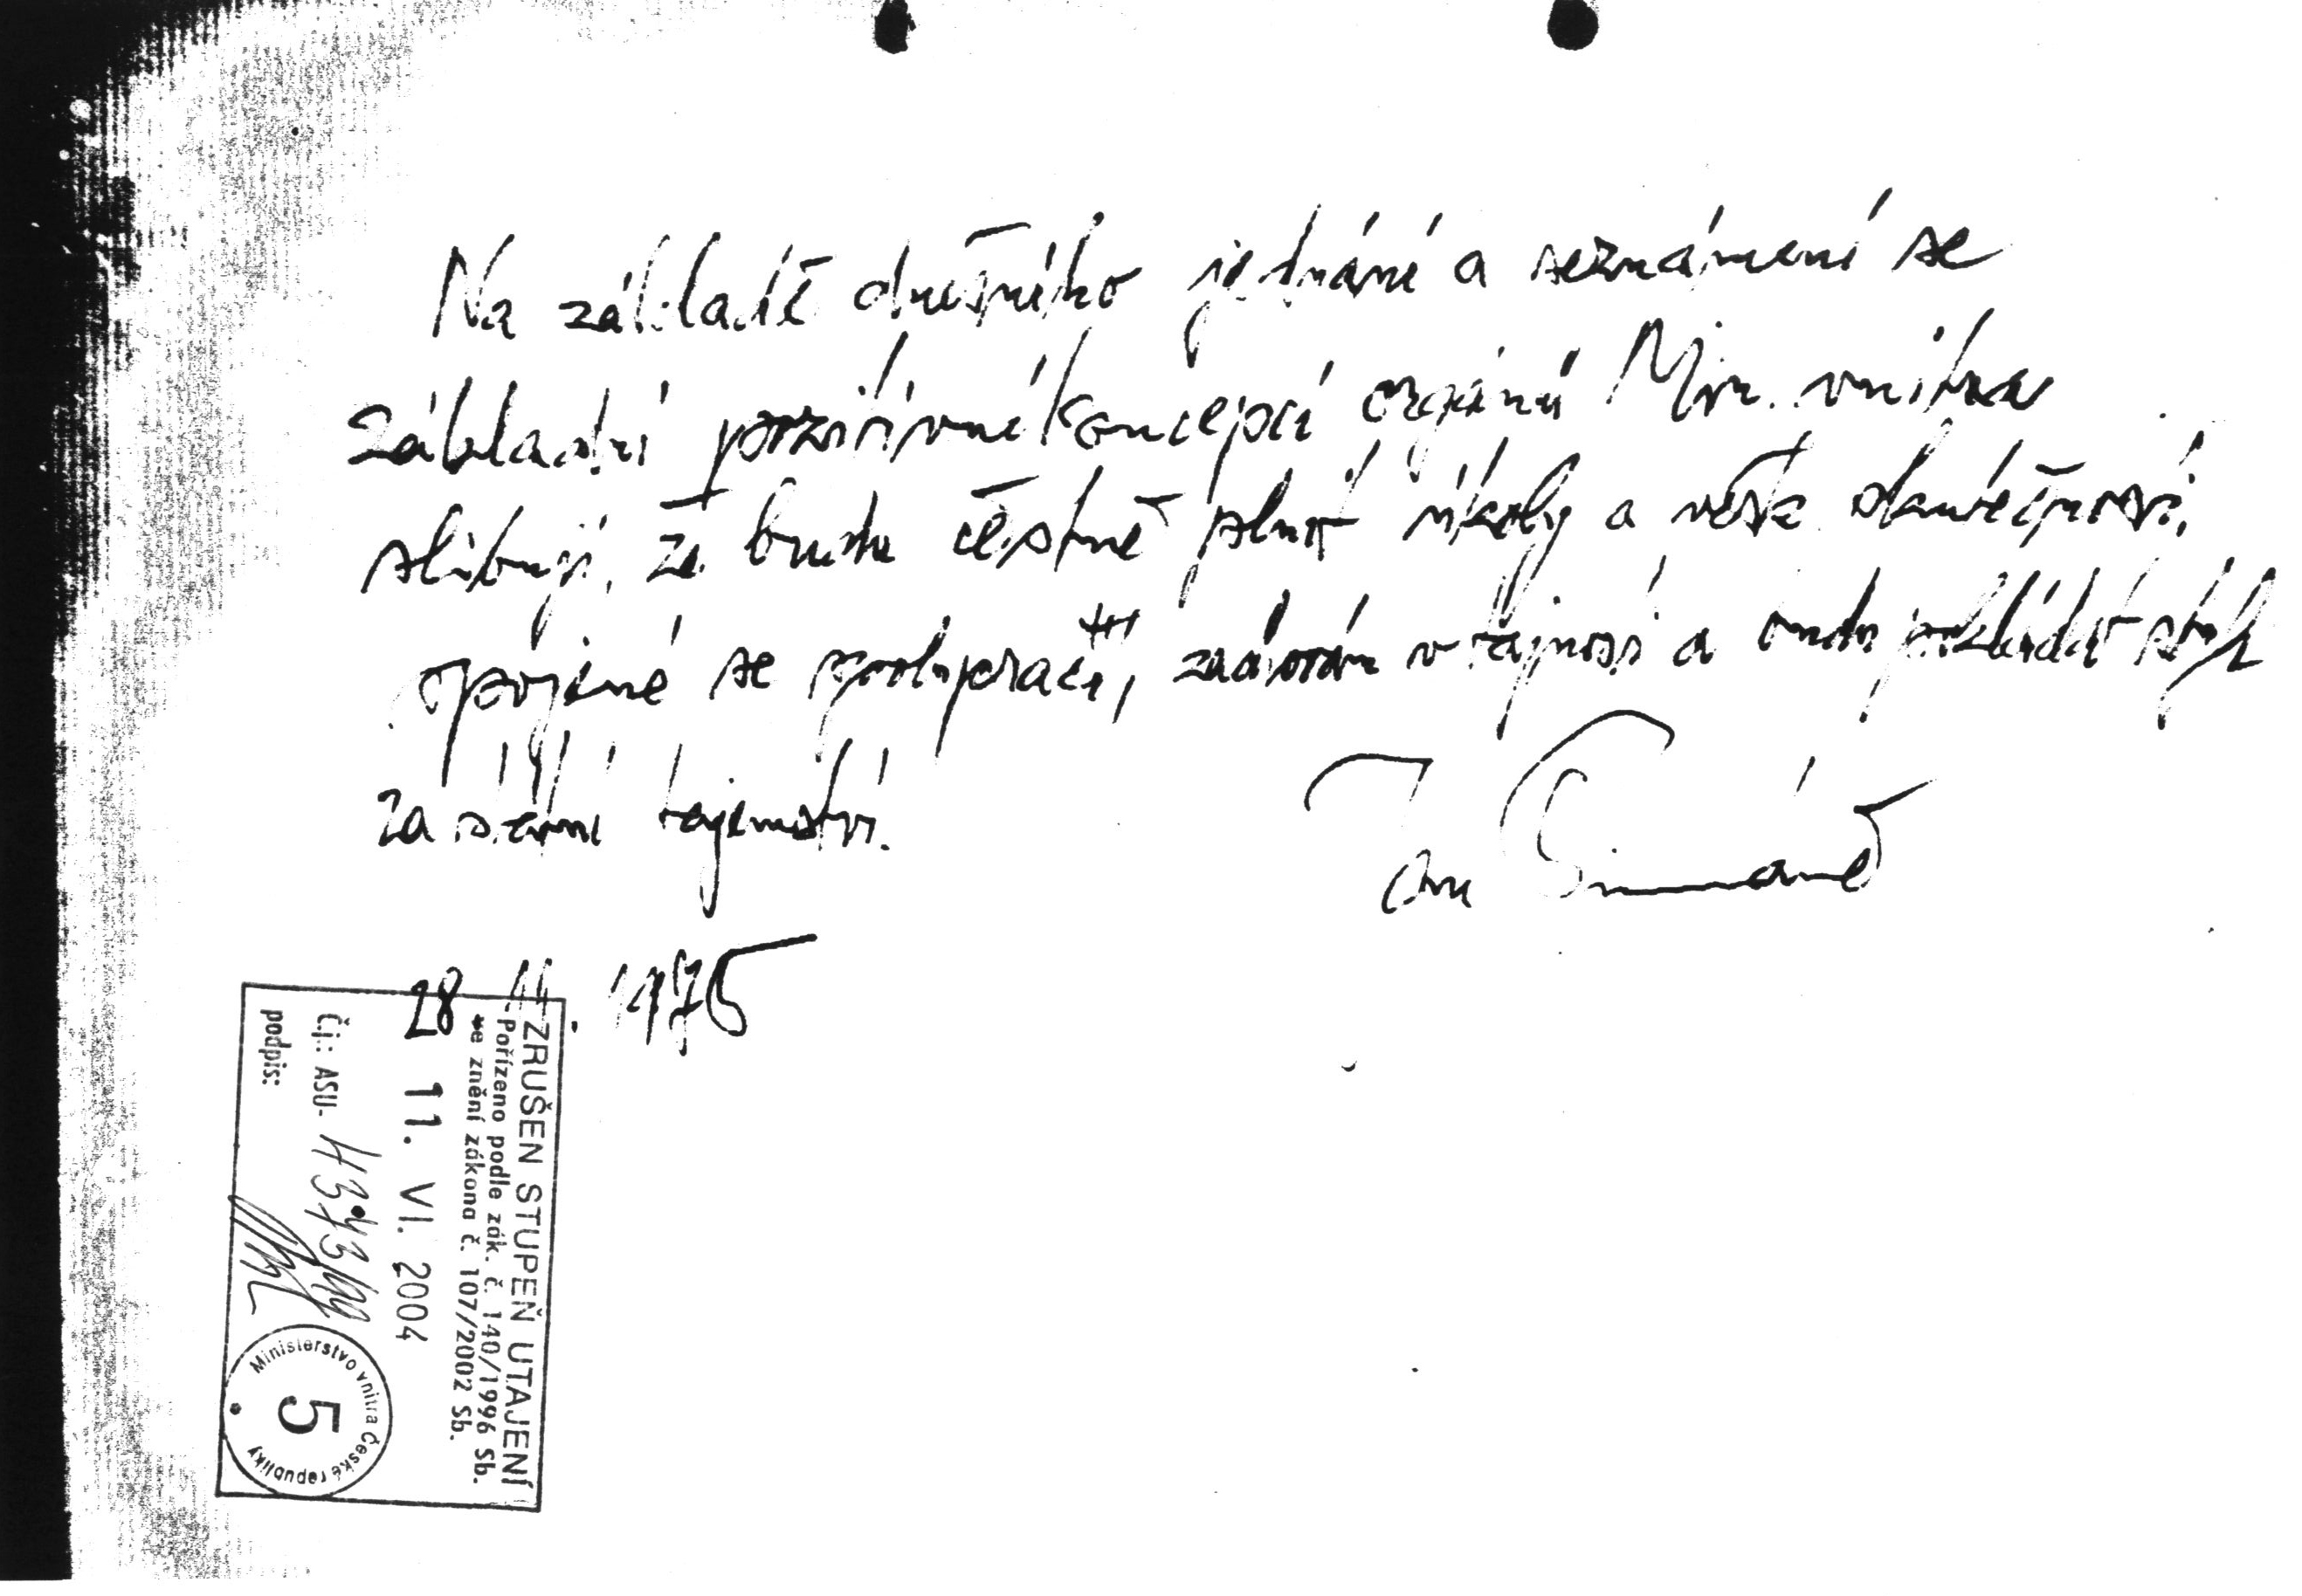 Na základě dnešního jednání a seznámení se
základní pozitivní koncepcí orgánů Min. vnitra
slibuji, že budu čestně plnit úkoly a vešk. skutečnosti,
spojené se spoluprací, zachovám v tajnosti a budu pokládat styk
za státní tajemství.
28. 11. 1975
ZRUŠEN STUPEŇ UTAJENÍ
Pořízeno podle zák. č. 140/1996 Sb.
ve znění zákona č. 107/2002 Sb.
11. VI. 2004
Čj.: ASU-
podpis:
Ministerstvo vnitra České republiky
5